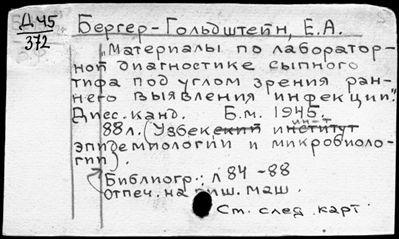 Д 45
372
Бергер-Гольдштейн, Е.А.
"Материалы по лаборатор-
ной диагностике сыпного
тифа под углом зрения ран-
него выявления инфекции."
Дисс. канд. Б.м. 1945.
ин-т
88 л. (Узбекский институт
эпидемиологии и микробиоло-
гии).
Библиогр.: л 84-88
Отпеч. на пиш. маш.
См. след. карт